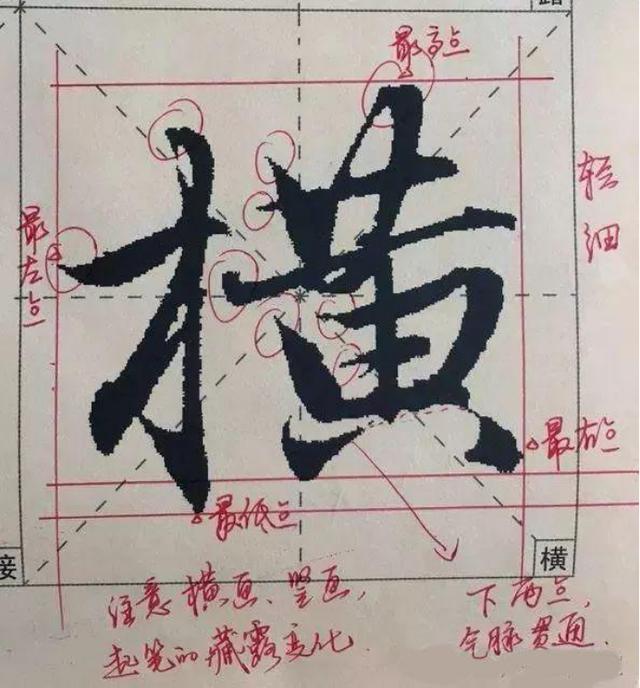 最高点
横
轻
细
最左点
最右点
最低点
接
横
注意横画、竖画,
起笔的藏露变化
下两点,
气脉贯通.